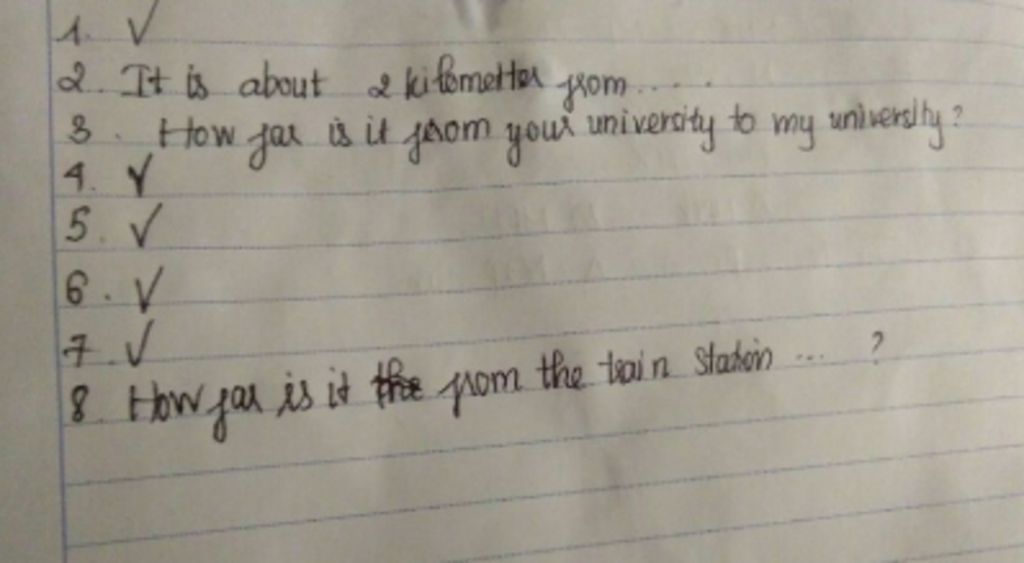 1. ✓
2. It is about 2 kilometter from.....
3. How far is it from your university to my university?
4. ✓
5. ✓
6. ✓
7. ✓
8. How far is it the from the train station ... ?